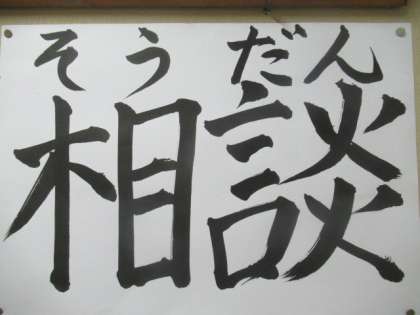 そうだん
相談